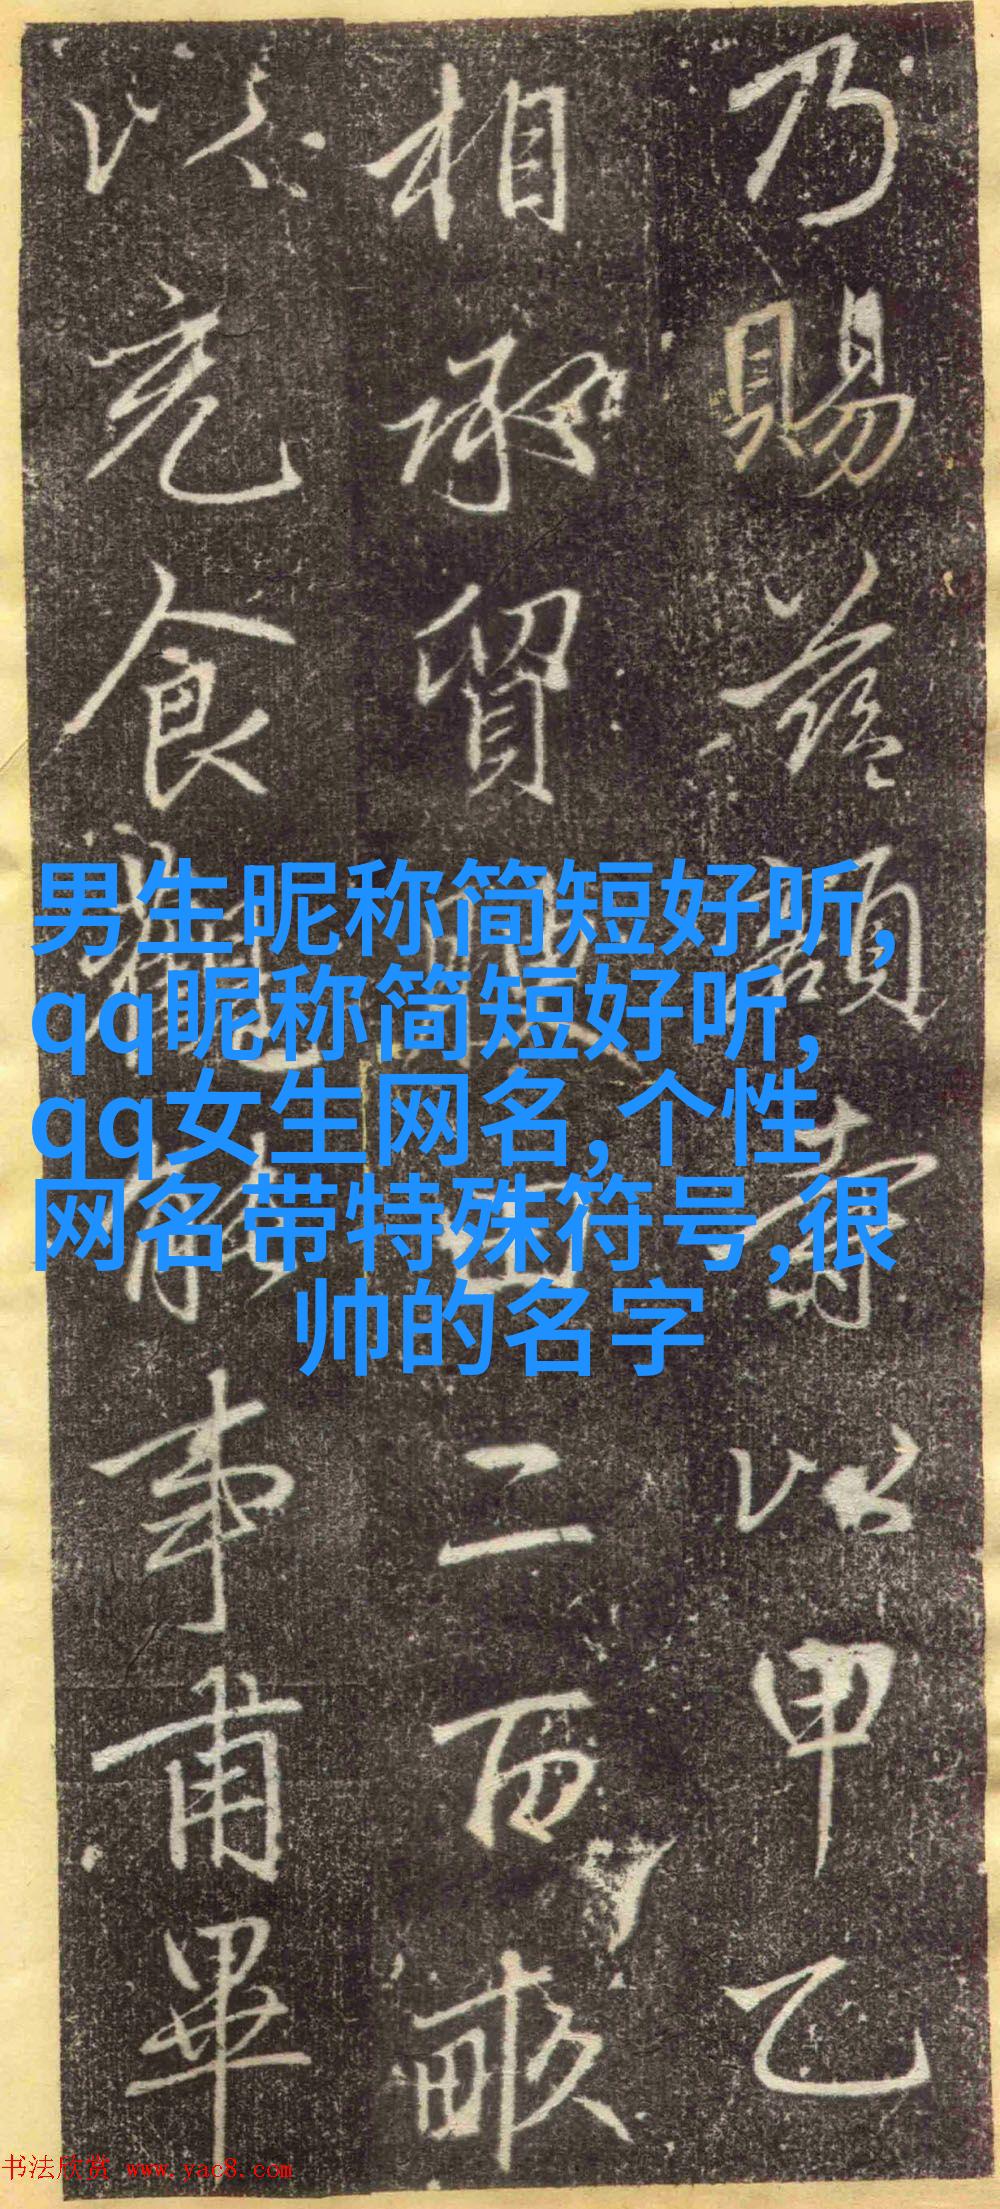 乃賜益額書以甲乙
相承貿
二百畝
以充食
事甫畢
男生昵称简短好听,
qq昵称简短好听,
qq女生网名,个性
网名带特殊符号,很
帅的名字
书法欣赏 www.yac8.com